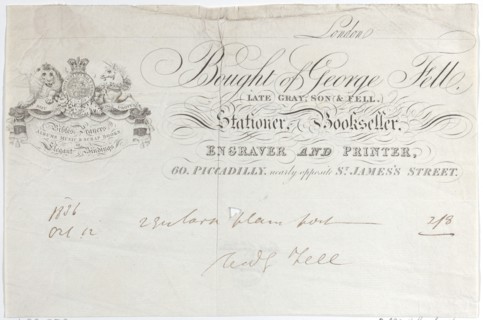 London
Bought of George Fell.
LATE GRAY, SON & FELL.
Stationer, Bookseller,
ENGRAVER AND PRINTER,
60. PICCADILLY, nearly opposite St. JAMES'S STREET.
Bibles, Prayers,
Elegant Bindings
1836
Oct 12 plain post 2/8
Fell